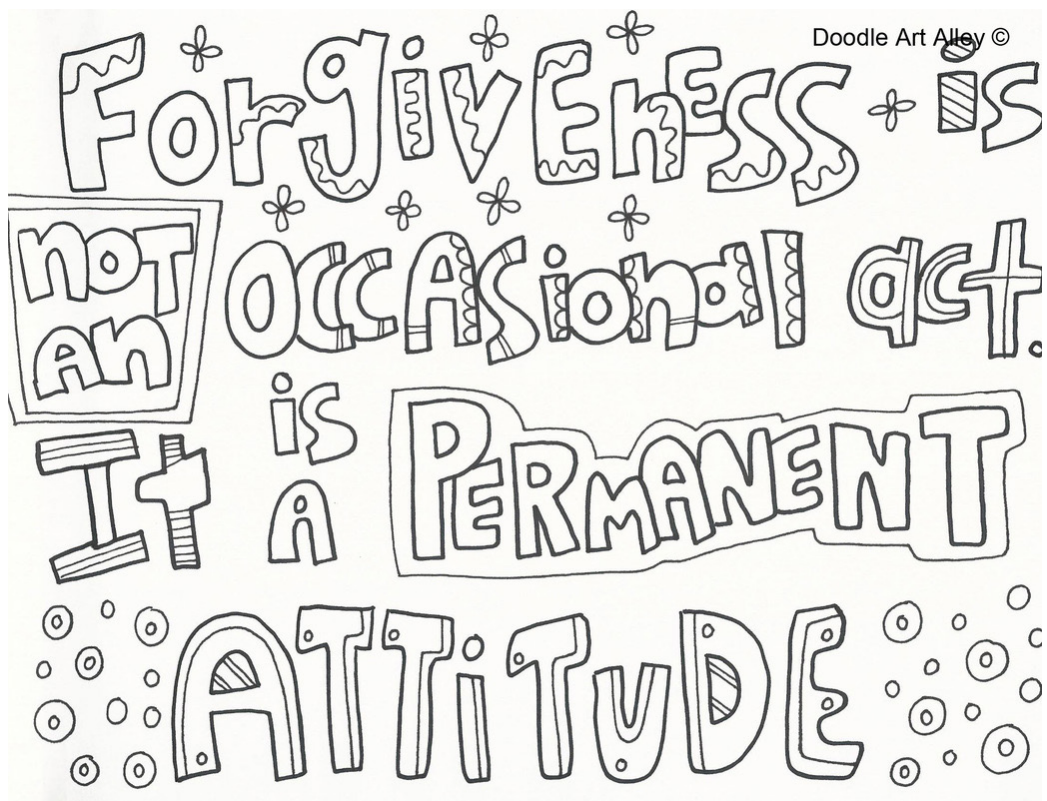 Doodle Art Alley ©
ForgivEnEss is
noT
An
OccASional act.
It is A PERMANENT
ATTiTuDE